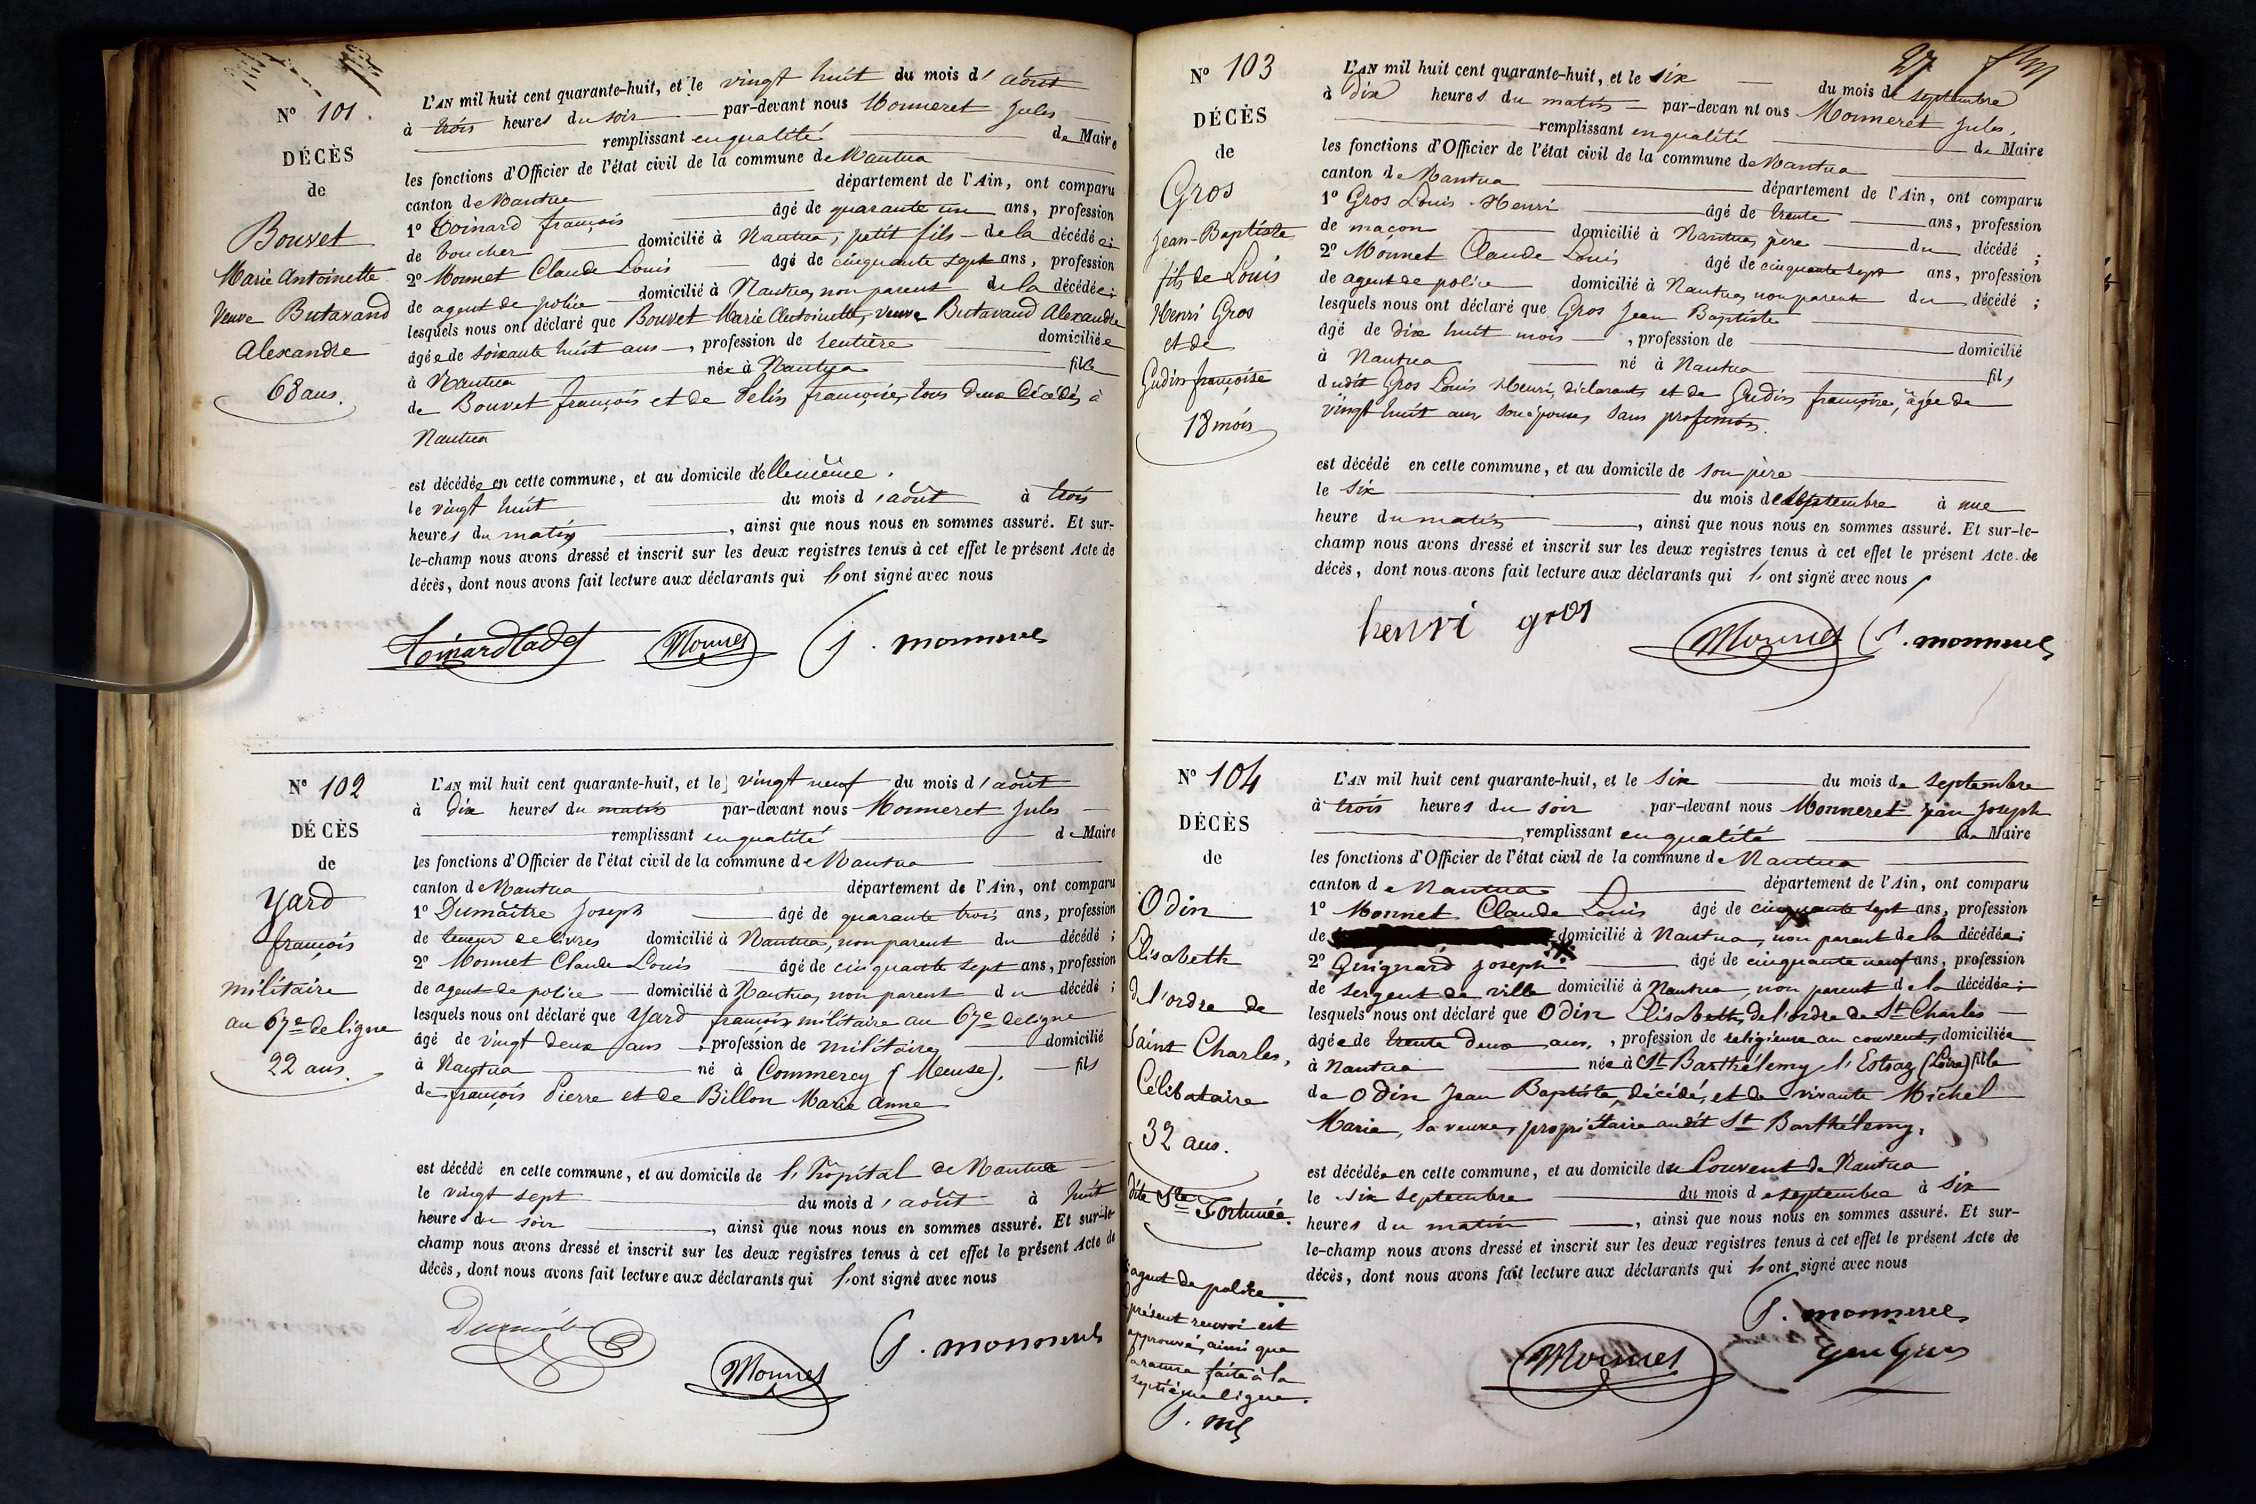 Nº 101.
DÉCÈS
de
Bouvet
Marie Antoinette
Veuve Butavand
Alexandre
68 ans.
L'AN mil huit cent quarante-huit, et le vingt huit du mois d'août
à trois heures du soir par-devant nous Monneret Jules
remplissant en qualité de Maire
les fonctions d'Officier de l'état civil de la commune de Nantua
canton de Nantua département de l'Ain, ont comparu
1º Toinard françois âgé de quarante un ans, profession
de boucher domicilié à Nantua, petit fils de la décédée;
2º Monnet Claude Louis âgé de cinquante sept ans, profession
de agent de police domicilié à Nantua, non parent de la décédée;
lesquels nous ont déclaré que Bouvet Marie Antoinette, veuve Butavand Alexandre
âgée de soixante huit ans, profession de rentière domiciliée
à Nantua née à Nantua fille
de Bouvet françois et de Velin françoise, tous deux décédés à
Nantua
est décédée en cette commune, et au domicile d'elle même.
le vingt huit du mois d'août à trois
heures du matin, ainsi que nous nous en sommes assuré. Et sur-
le-champ nous avons dressé et inscrit sur les deux registres tenus à cet effet le présent Acte de
décès, dont nous avons fait lecture aux déclarants qui l'ont signé avec nous
Toinard Cadet Monnet J. monneret
Nº 102
DÉCÈS
de
Yard
françois
militaire
au 67e de ligne
22 ans.
L'AN mil huit cent quarante-huit, et le vingt neuf du mois d'août
à dix heures du matin par-devant nous Monneret Jules
remplissant en qualité de Maire
les fonctions d'Officier de l'état civil de la commune de Nantua
canton de Nantua département de l'Ain, ont comparu
1º Dumaître Joseph âgé de quarante trois ans, profession
de teneur de livres domicilié à Nantua, non parent du décédé;
2º Monnet Claude Louis âgé de cinquante sept ans, profession
de agent de police domicilié à Nantua, non parent du décédé;
lesquels nous ont déclaré que Yard françois militaire au 67e de ligne
âgé de vingt deux ans, profession de militaire domicilié
à Nantua né à Commercy (Meuse), fils
de françois Pierre et de Billon Marie Anne
est décédé en cette commune, et au domicile de l'hôpital de Nantua
le vingt sept du mois d'août à huit
heures du soir, ainsi que nous nous en sommes assuré. Et sur-le-
champ nous avons dressé et inscrit sur les deux registres tenus à cet effet le présent Acte de
décès, dont nous avons fait lecture aux déclarants qui l'ont signé avec nous
Dumaître Monnet J. monneret
27
Nº 103
DÉCÈS
de
Gros
Jean-Baptiste
fils de Louis
Henri Gros
et de
Gudin françoise
18 mois
L'AN mil huit cent quarante-huit, et le six du mois de septembre
à dix heures du matin par-devan nt ous Monneret Jules,
remplissant en qualité de Maire
les fonctions d'Officier de l'état civil de la commune de Nantua
canton de Nantua département de l'Ain, ont comparu
1º Gros Louis Henri âgé de trente ans, profession
de maçon domicilié à Nantua, père du décédé;
2º Monnet Claude Louis âgé de cinquante sept ans, profession
de agent de police domicilié à Nantua, non parent du décédé;
lesquels nous ont déclaré que Gros Jean Baptiste
âgé de dix huit mois, profession de domicilié
à Nantua né à Nantua fils
dudit Gros Louis Henri, déclarant, et de Gudin françoise, âgée de
vingt huit ans son épouse, sans profession.
est décédé en cette commune, et au domicile de son père
le six du mois de septembre à une
heure du matin, ainsi que nous nous en sommes assuré. Et sur-le-
champ nous avons dressé et inscrit sur les deux registres tenus à cet effet le présent Acte de
décès, dont nous avons fait lecture aux déclarants qui l'ont signé avec nous
henri gros Monnet J. monneret
Nº 104
DÉCÈS
de
Odin
Elisabeth
de l'ordre de
Saint Charles,
Célibataire
32 ans.
dite Ste
Fortunée.
agent de police.
présent renvoi est
approuvé, ainsi que
la rature faite à la
septième ligne.
J. mt
L'AN mil huit cent quarante-huit, et le six du mois de septembre
à trois heures du soir par-devant nous Monneret Jean Joseph
remplissant en qualité de Maire
les fonctions d'Officier de l'état civil de la commune de Nantua
canton de Nantua département de l'Ain, ont comparu
1º Monnet Claude Louis âgé de cinquante sept ans, profession
de domicilié à Nantua, non parent de la décédée;
2º Guignard Joseph âgé de cinquante neuf ans, profession
de sergent de ville domicilié à Nantua, non parent de la décédée;
lesquels nous ont déclaré que Odin Elisabeth, de l'ordre de St Charles
âgée de trente deux ans, profession de religieuse au couvent, domiciliée
à Nantua née à St Barthélemy l'Estraz (Loire) fille
de Odin Jean Baptiste, décédé, et de vivante Michel
Marie, sa veuve, propriétaire audit St Barthélemy,
est décédée en cette commune, et au domicile du Couvent de Nantua
le six septembre du mois de septembre à six
heures du matin, ainsi que nous nous en sommes assuré. Et sur-
le-champ nous avons dressé et inscrit sur les deux registres tenus à cet effet le présent Acte de
décès, dont nous avons fait lecture aux déclarants qui l'ont signé avec nous
J. monneret
Monnet